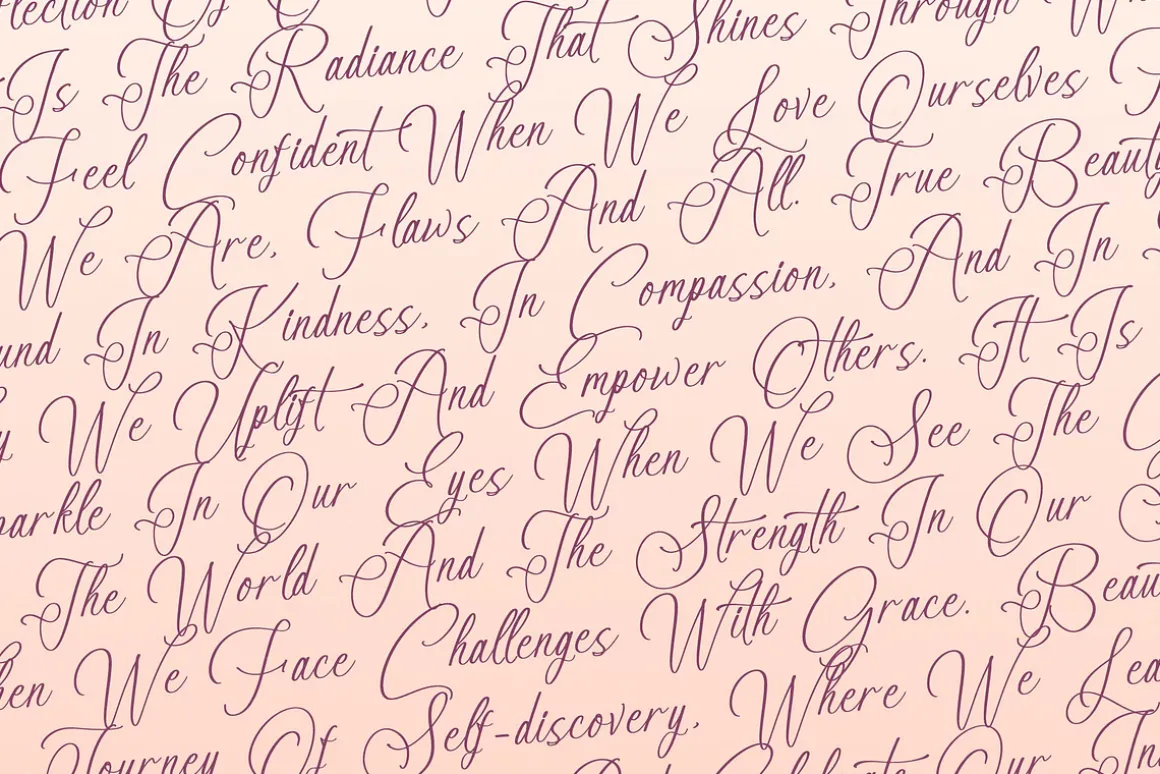 Is The Radiance That Shines Through
Feel Confident When We Love Ourselves
We Are, Flaws And All. True Beauty
In Kindness, In Compassion, And In
We Uplift And Empower Others. It Is
In Our Eyes When We See The
The World And The Strength In Our
We Face Challenges With Grace.
Journey Of Self-discovery, Where We
Our